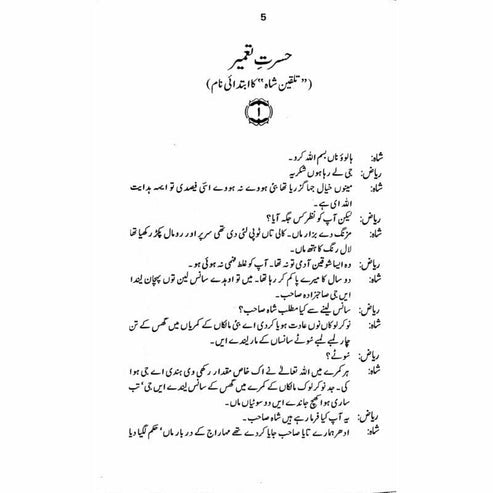 5
حسرتِ تعمیر
(”تلقین شاہ“ کا ابتدائی نام)
۱
شاہ: ہالوؤ ناں بسم اللہ کرو۔
ریاض: جی لے رہا ہوں شکریہ
شاہ: مینوں خیال جہا گزریا تھا بئی ہووے نہ ہووے اسّی فیصدی تو ایہہ ہدایت
اللہ ای ہے۔
ریاض: لیکن آپ کو نظر کس جگہ آیا؟
شاہ: مزنگ دے بزار ماں۔ کالی تاں ٹوپی لئی دی تھی سر پر اور رومال پکڑ رکھیا تھا
لال رنگ کا ہتھ ماں۔
ریاض: وہ ایسا شوقین آدمی تو نہ تھا۔ آپ کو غلط فہمی نہ ہوئی ہو۔
شاہ: دو سال کا میرے پا کم کر رہا تھا۔ میں تو اوہدے سانس لین توں پہچان لیندا
ایں جی صاحبزادہ صاحب۔
ریاض: سانس لینے سے کیا مطلب شاہ صاحب؟
شاہ: نوکر لوکاں نوں عادت ہویا کردی اے بئی مالکاں کے کمریاں میں گھس کے تن
چار لمبے لمبے سُوٹے سانساں کے مار لیندے ایں۔
ریاض: سُوٹے؟
شاہ: ہر کمرے میں اللہ تعالے نے اک خاص مقدار رکھی وی ہندی اے جی ہوا
کی۔ جد نوکر لوک مالکاں کے کمرے میں گھس کے سانس لیندے ایں جی‘ تب
ساری ہوا کھچ جاندے ایں دو سوٹیاں ماں۔
ریاض: یہ آپ کیا فرما رہے ہیں شاہ صاحب۔
شاہ: ادھر ہمارے تایا صاحب جایا کردے تھے مہاراج کے دربار ماں‘ حکم لگیا دیا